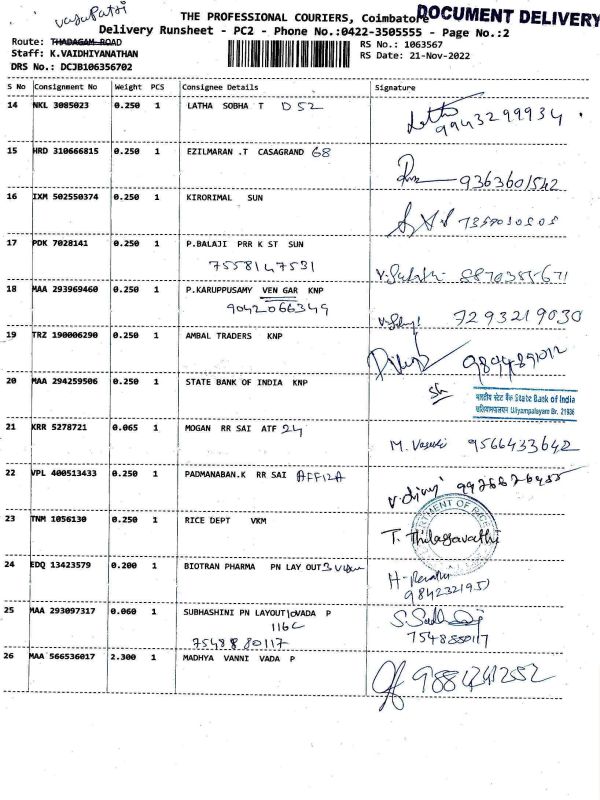 THE PROFESSIONAL COURIERS, Coimbatore
DOCUMENT DELIVERY
Delivery Runsheet - PC2 - Phone No.:0422-3505555 - Page No.:2
Route: THADAGAM ROAD
RS No.: 1063567
Staff: K.VAIDHIYANATHAN
RS Date: 21-Nov-2022
DRS No.: DCJB106356702
S No Consignment No Weight PCS Consignee Details Signature
14 NKL 3085023 0.250 1 LATHA SOBHA T D 52 Latha 9943299934
15 HRD 310666815 0.250 1 EZILMARAN .T CASAGRAND 68 9363601542
16 IXM 502550374 0.250 1 KIRORIMAL SUN
17 PDK 7028141 0.250 1 P.BALAJI PRR K ST SUN
7558147531
18 MAA 293969460 0.250 1 P.KARUPPUSAMY VEN GAR KNP 7293219030
9042066349
19 TRZ 190006290 0.250 1 AMBAL TRADERS KNP
20 MAA 294259506 0.250 1 STATE BANK OF INDIA KNP
भारतीय स्टेट बैंक State Bank of India
Uliyampalayam Br. 21936
21 KRR 5278721 0.065 1 MOGAN RR SAI ATF 24 M. Vasuki 9566433642
22 VPL 400513433 0.250 1 PADMANABAN.K RR SAI AFF12A
23 TNM 1056130 0.250 1 RICE DEPT VKM T. Thilagavathi
24 EDQ 13423579 0.200 1 BIOTRAN PHARMA PN LAY OUT
9842321951
25 MAA 293097317 0.060 1 SUBHASHINI PN LAYOUT VADA P
116C
7548880117 7548880117
26 MAA 566536017 2.300 1 MADHYA VANNI VADA P 9884241252